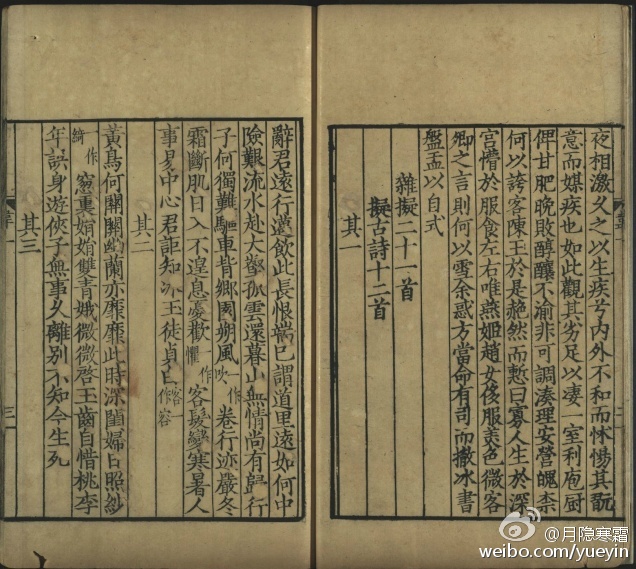 夜相激久之以生疾兮內外不和而怵惕其翫
意而媒疾也如此觀其劣足以凄一室利庖厨
俾甘肥晚敗醇釀不渝非可調湊理安營魄柰
何以誇客陳王於是赧然而慙曰寡人生於深
宮懵於服食左右唯燕姬趙女侈服羙色微客
卿之言則何以雪余惑方當命有司而撤冰書
盤盂以自式
雜擬二十一首
擬古詩十二首
其一
辭君遠行邁飲此長恨端已謂道里遠如何中
險艱流水赴大壑孤雲還暮山無情尚有歸行
子何獨難驅車背鄉園朔風一作吹卷行迹嚴冬
霜斷肌日入不遑息憂歡一作懽客髮變寒暑人
事易中心君詎知冰玉徒貞白
其二
黃鳥何關關幽蘭亦靡靡此時深閨婦日照紗
一作綺窓裏娟娟雙青娥微微啓玉齒自惜桃李
年誤身遊俠子無事久離別不知今生死
其三
@月隐寒霜
weibo.com/yueyin